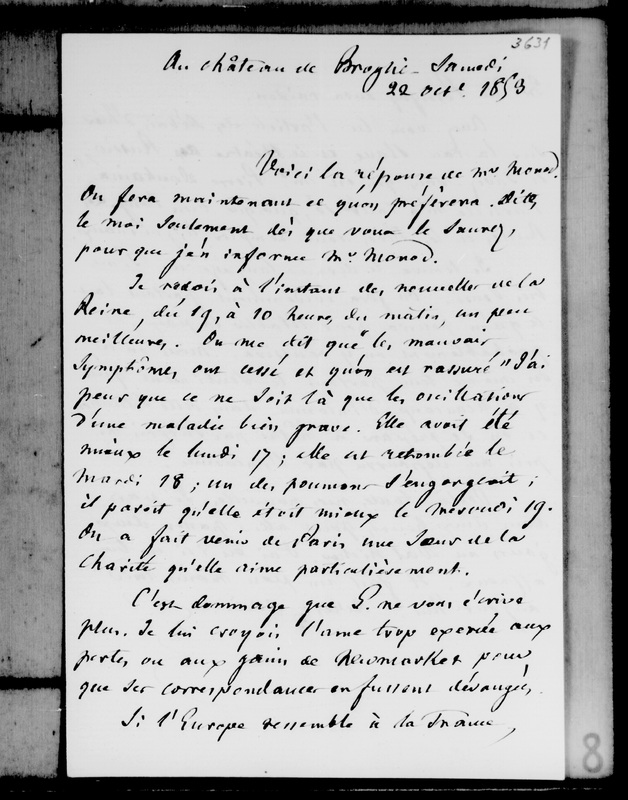 3631
Au château de Broglie - Samedi
22 octe. 1853
Voici la réponse de Mr. Monod.
On fera maintenant ce qu'on préférera. Dites
le moi seulement dès que vous le saurez,
pour que j'en informe Mr. Monod.
Je reçois à l'instant des nouvelles de la
Reine, du 19, à 10 heures du matin, un peu
meilleures. On me dit que "les mauvais
symptômes ont cessé et qu'on est rassuré" J'ai
peur que ce ne soit là que les oscillations
d'une maladie bien grave. Elle avoit été
mieux le lundi 17 ; elle est retombée le
mardi 18 ; un des poumons s'engorgeoit ;
il paroit qu'elle étoit mieux le mercredi 19.
On a fait venir de Paris une Soeur de la
Charité qu'elle aime particulièrement.
C'est dommage que G. ne vous écrive
plus. Je lui croyois l'ame trop exercée aux
pertes ou aux gains de Newmarket pour
que ses correspondances en fussent dérangées.
Si l'Europe ressemble à la France,
8